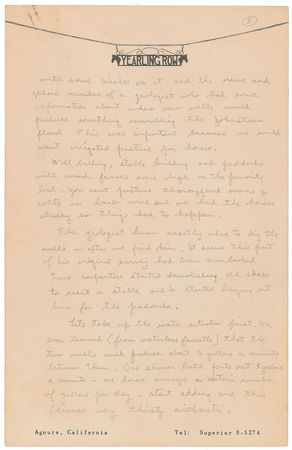 5
YEARLING ROW
with some circles on it and the name and
phone number of a geologist who had some
information about where new wells would
produce something resembling the Johnstown
flood. This was important because we would
want irrigated pasture for horses.
Well drilling, stable building and paddocks
with wood fences were high on the priority
list. You can't pasture thoroughbred mares &
colts in barb wire and we had the horses
already so things had to happen.
The geologist knew exactly where to dig the
wells — after we paid him. It seems this part
of his original survey had been overlooked.
Two carpenters started demolishing old sheds
to erect a stable and I started laying out
lines for the paddocks.
Lets take up the water situation first. We
soon learned (from waterless faucets) that the
two wells would produce about 2 gallons a minute
between them. One shower bath puts out 5 gallons
a minute — one horse averages a certain number
of gallons per day — start adding and this
becomes very thirsty arithmetic.
Agoura, California Tel: Superior 8-5274